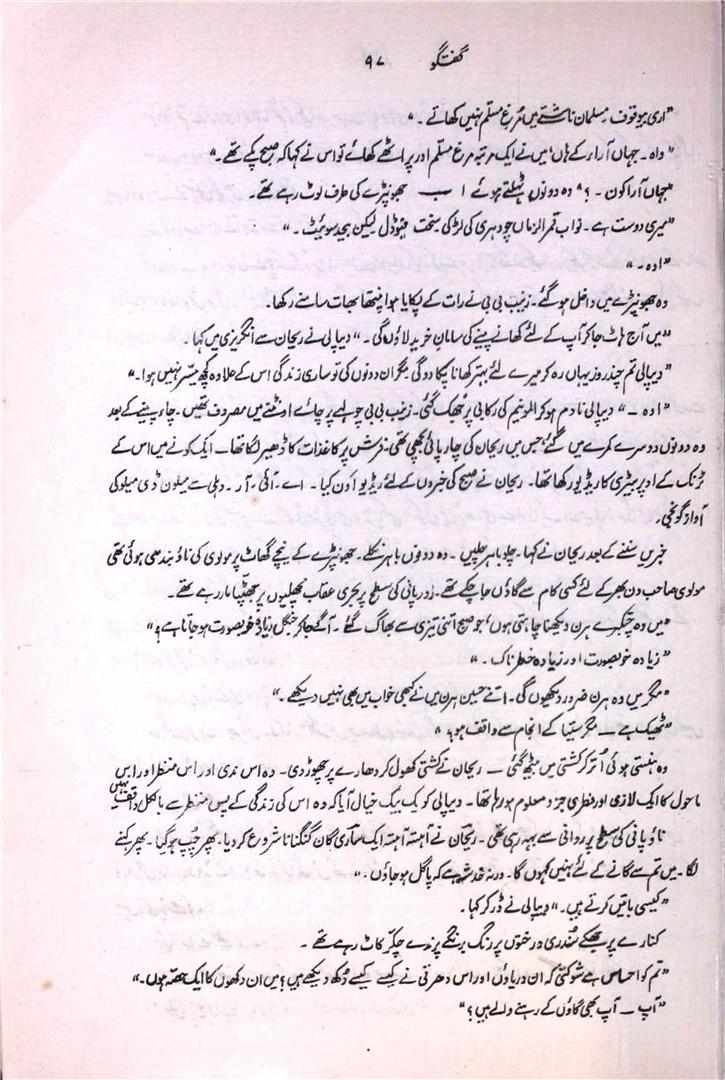 گفتگو ۹۷
”اری بیوقوف۔ مسلمان ناشتے میں مُرغ مسلم نہیں کھاتے۔“
”واہ۔ جہاں آراء کے ہاں میں نے ایک مرتبہ مرغ مسلم اور پراٹھے کھائے تو اس نے کہا کہ صبح پکے تھے۔“
”جہاں آرا کون۔؟“ وہ دونوں ٹہلتے ہوئے اب جھونپڑے کی طرف لوٹ رہے تھے۔
”میری دوست ہے۔ نواب قمر الزماں چودہری کی لڑکی سخت فیوڈل لیکن بیحد سوئیٹ۔“
”اوہ۔“
وہ جھونپڑے میں داخل ہو گئے۔ زینب بی بی نے رات کے پکایا ہوا پنتھا بھات سامنے رکھا۔
”میں آج ہاٹ جا کر آپ کے لئے کھانے پینے کی سامان خرید لاؤں گی۔“ دیپالی نے ریحان سے انگریزی میں کہا۔
”دیپالی تم چند روز یہاں رہ کر میرے لئے بہتر کھانا پکا دو گی مگر ان دونوں کی تو ساری زندگی اس کے علاوہ کچھ میسّر نہیں ہوا۔“
”اوہ —“ دیپالی نادم ہو کر المونیم کی رکابی پر جُھک گئی۔ زینب بی بی چولہے پر چائے اونٹنے میں مصروف تھیں۔ چاء پینے کے بعد
وہ دونوں دوسرے کمرے میں گئے جس میں ریحان کی چارپائی بچھی تھی۔ فرش پر کاغذات کا ڈھیر لگا تھا — ایک کونے میں اس کے
ٹرنک کے اوپر بیٹری کا ریڈیو رکھا تھا۔ ریحان نے صبح کی خبروں کے لئے ریڈیو اون کیا۔ اے۔ آئی۔ آر۔ دہلی سے میلون ڈی میلو کی
آواز گونجی۔
خبریں سننے کے بعد ریحان نے کہا۔ چلو باہر چلیں۔ وہ دونوں باہر نکلے۔ جھونپڑے کے نیچے گھاٹ پر مولوی کی ناؤ بندھی ہوئی تھی
مولوی صاحب دن بھر کے لئے کسی کام سے گاؤں جا چکے تھے۔ پانی کی سطح پر بحری عقاب مچھلیوں پر جھپٹّا مار رہے تھے۔
”میں وہ چتکبرے ہرن دیکھنا چاہتی ہوں، جو صبح اتنی تیزی سے بھاگ گئے۔ آگے جا کر جنگل زیادہ خوبصورت ہو جاتا ہے؟“
”زیادہ خوبصورت اور زیادہ خطرناک۔“
”مگر میں وہ ہرن ضرور دیکھوں گی۔ اتنے حسین ہرن میں نے کبھی خواب میں بھی نہیں دیکھے۔“
”ٹھیک ہے — مگر سیتا کے انجام سے واقف ہو؟“
وہ ہنستی ہوئی اُتر کر کشتی میں بیٹھ گئی — ریحان نے کشتی کھول کر دھارے پر چھوڑ دی۔ وہ اس ندی اور اس منظر اور اس
ماحول کا ایک لازمی اور فطری جزو معلوم ہو رہا تھا۔ دیپالی کو یک بیک خیال آیا کہ وہ اس کی زندگی کے پس منظر سے بالکل واقف نہیں
ناؤ پانی کی سطح پر روانی سے بہہ رہی تھی۔ ریحان نے آہستہ آہستہ ایک ساری گان گنگنانا شروع کر دیا۔ پھر چُپ ہو گیا۔ پھر کہنے
لگا۔ میں تم سے گانے کے لئے نہیں کہوں گا۔ ورنہ خدشہ ہے کہ پاگل ہو جاؤں۔“
”کیسی باتیں کرتے ہیں۔“ دیپالی نے ڈر کر کہا۔
کنارے پر جھکے سُندری درختوں پر رنگ برنگے پرندے چکّر کاٹ رہے تھے۔
”تم کو احساس ہے شوکتی کہ ان دریاؤں اور اس دھرتی نے کیسے کیسے دُکھ دیکھے ہیں؟ میں ان دکھوں کا ایک حصّہ ہوں۔“
”آپ — آپ بھی گاؤں کے رہنے والے ہیں؟“